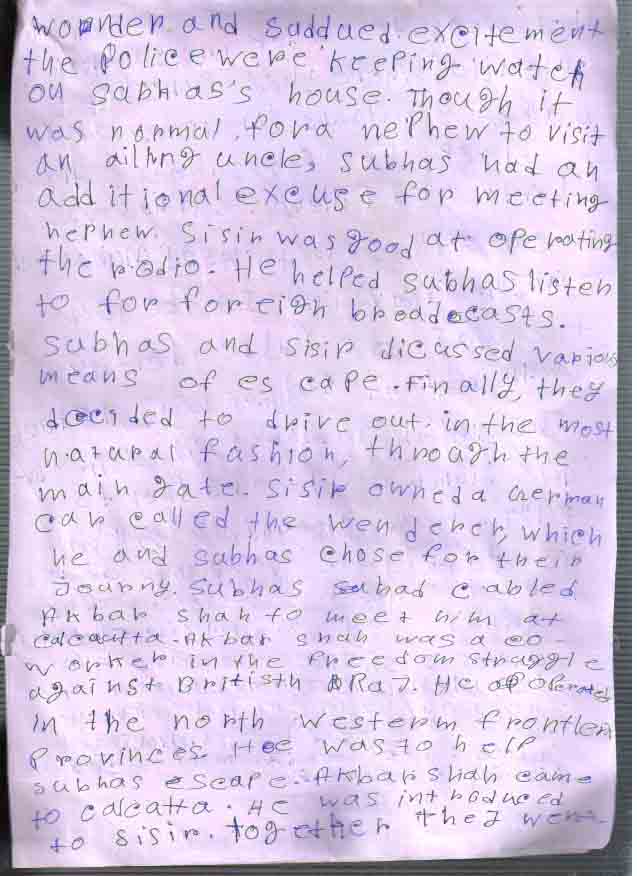 wonder and suddued excitement
the Police were keeping watch
on Subhas's house. Though it
was normal fora nephew to visit
an ailing uncle, Subhas had an
additional excuse for meeting
nephew. Sisir was good at operating
the radio. He helped Subhas listen
to for foreign broadecasts.
Subhas and Sisir dicussed various
means of es cape. Finally, they
decided to drive out in the most
natural fashion, through the
main gate. Sisir owned a German
car called the Wenderer, which
he and Subhas chose for their
Journy. Subhas had cabled
Akbar Shah to meet him at
Calcautta. Akbar Shah was a co-
worker in the freedom struggle
against Britisth Raj. He operated
in the north Westerm frontier
Provinces. Hee was to help
Subhas escape. Akbar Shah came
to Calcatta. He was introduced
to Sisir. together they went